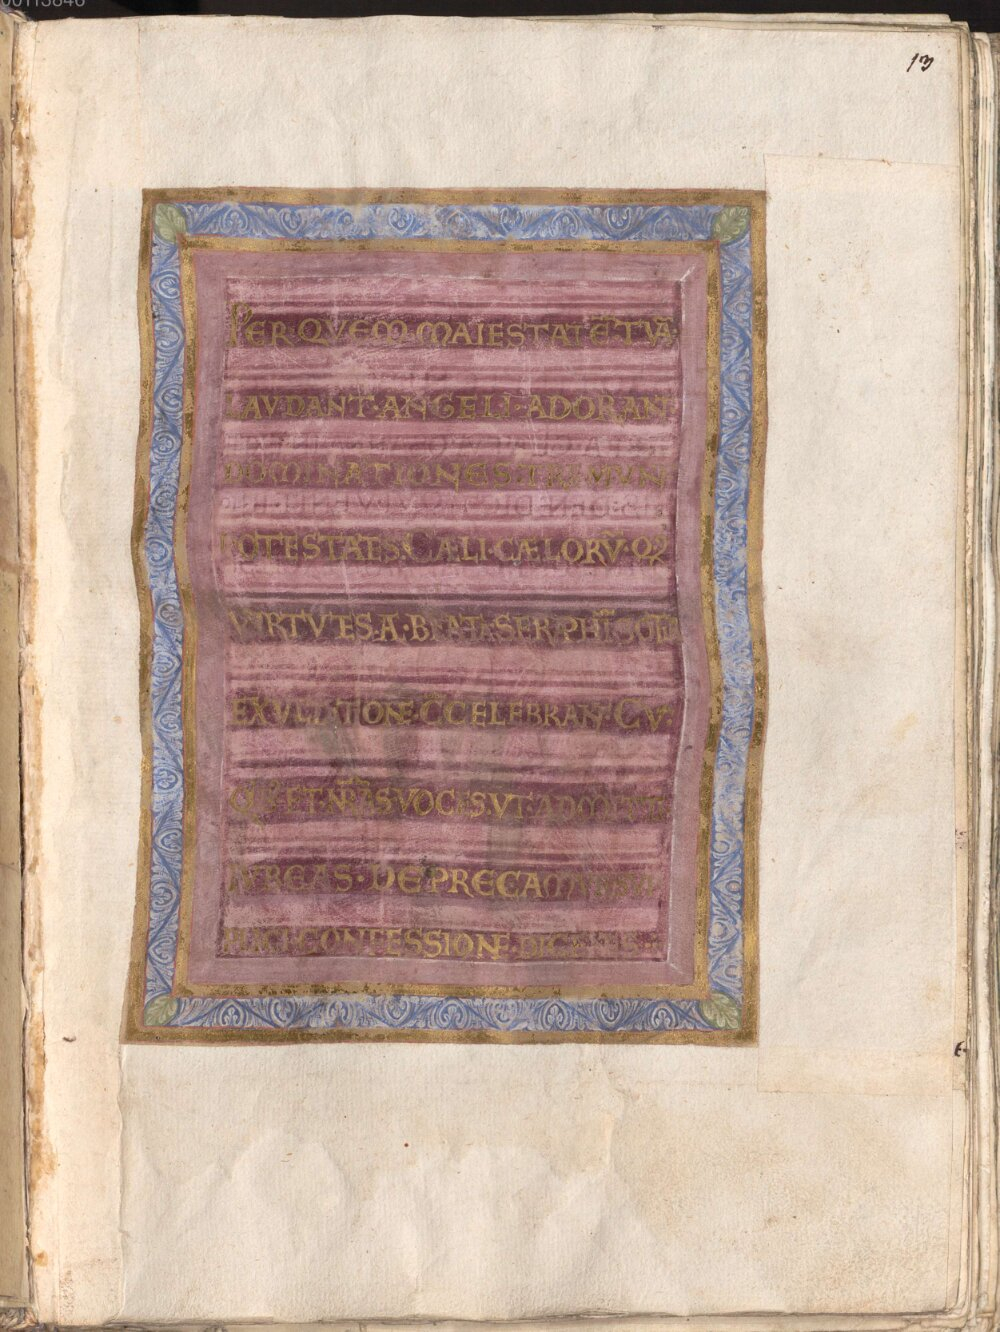 00113846
13
PER QVEM·MAIESTATĒ TVĀ·
LAVDANT·ANGELI·ADORANT
DOMINATIONES·TREMVNT
POTESTATS·CÆLI·CÆLORV̄·Q2
VIRTVTES·A·BEATA·SERAPHĪ·SOCIA
EXVLTATIONE CCELEBRANT·CV̄·
QVIB; ET NR̄AS VOCES·VT ADMITTI
IVBEAS·DEPRECAMVR·SVP
PLICI CONFESSIONE DICENTES